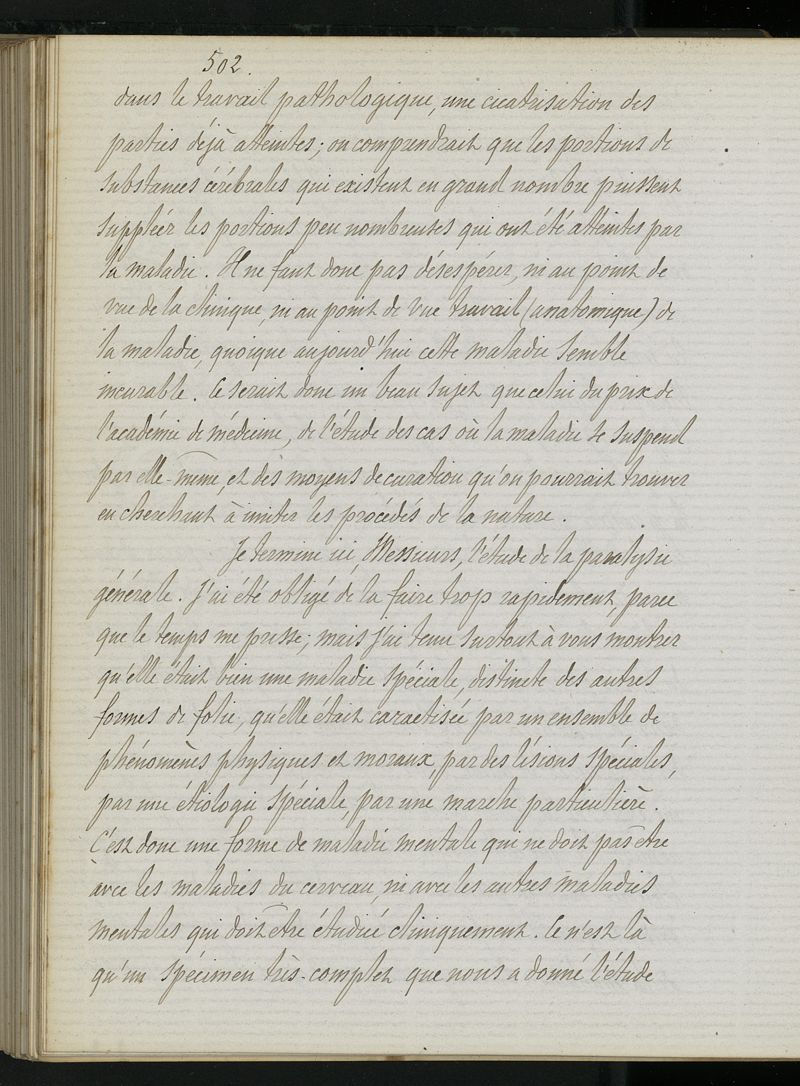 502.
dans le travail pathologique, une cicatrisation des
parties déjà atteintes; on comprendrait que les portions de
substances cérébrales qui existent en grand nombre puissent
suppléer les portions peu nombreuses qui ont été atteintes par
la maladie. Il ne faut donc pas désespérer, ni au point de
vue de la clinique, ni au point de vue travail (anatomique) de
la maladie, quoique aujourd'hui cette maladie semble
incurable. Ce serait donc un beau sujet que celui du prix de
l'académie de médecine, de l'étude des cas où la maladie se suspend
par elle-même, et des moyens de curation qu'on pourrait trouver
en cherchant à imiter les procédés de la nature.
Je termine ici, Messieurs, l'étude de la paralysie
générale. J'ai été obligé de la faire trop rapidement, parce
que le temps me presse; mais j'ai tenu surtout à vous montrer
qu'elle était bien une maladie spéciale, distincte des autres
formes de folie, qu'elle était caractisée par un ensemble de
phénomènes physiques et moraux, par des lésions spéciales,
par une étiologie spéciale, par une marche particulière.
C'est donc une forme de maladie mentale qui ne doit pas être
avec les maladies du cerveau, ni avec les autres maladies
mentales qui doit être étudiée cliniquement. Ce n'est là
qu'un spécimen très-complet que nous a donné l'étude